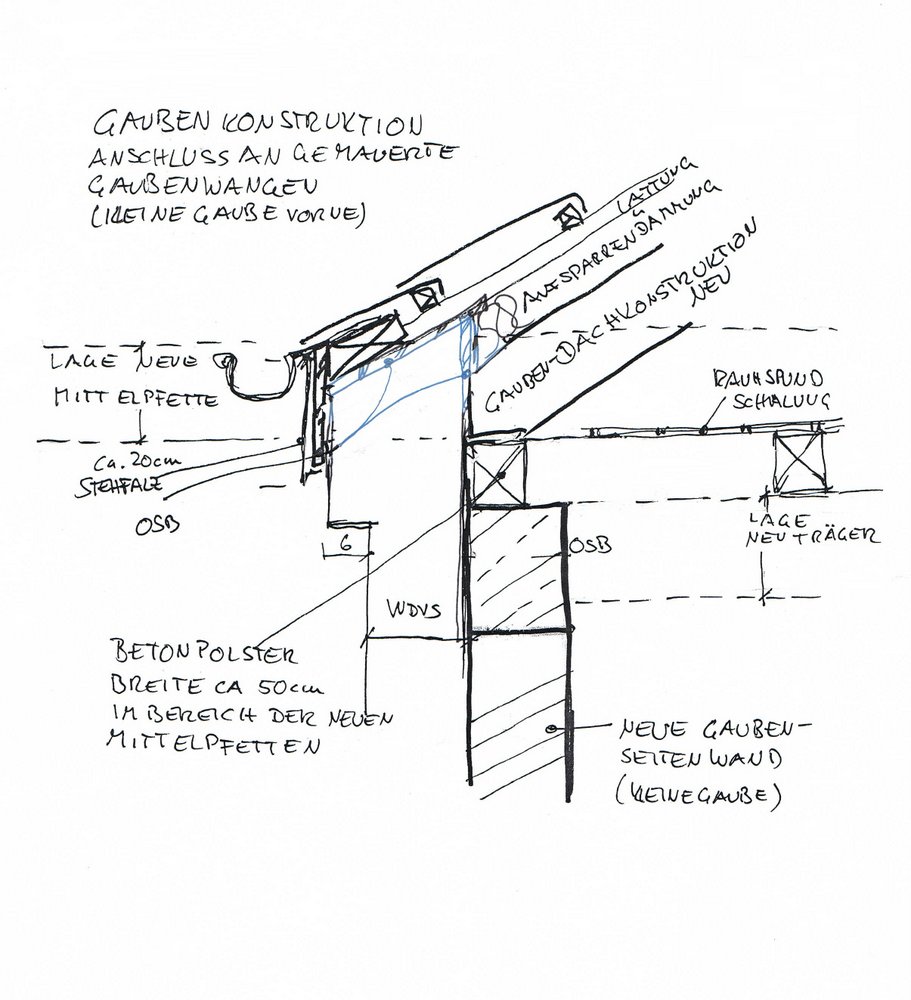 GAUBEN KONSTRUKTION
ANSCHLUSS AN GEMAUERTE
GAUBENWANGEN
(KLEINE GAUBE VORNE)
LATTUNG
AUFSPARRENDÄMMUNG
GAUBEN-DACHKONSTRUKTION
NEU
LAGE NEUE
MITTELPFETTE
RAUHSPUND
SCHALUNG
ca. 20cm
STEHFALZ
OSB
LAGE
NEU TRÄGER
6
OSB
WDVS
BETONPOLSTER
BREITE CA 50cm
IM BEREICH DER NEUEN
MITTELPFETTEN
NEUE GAUBEN-
SEITENWAND
(KLEINE GAUBE)